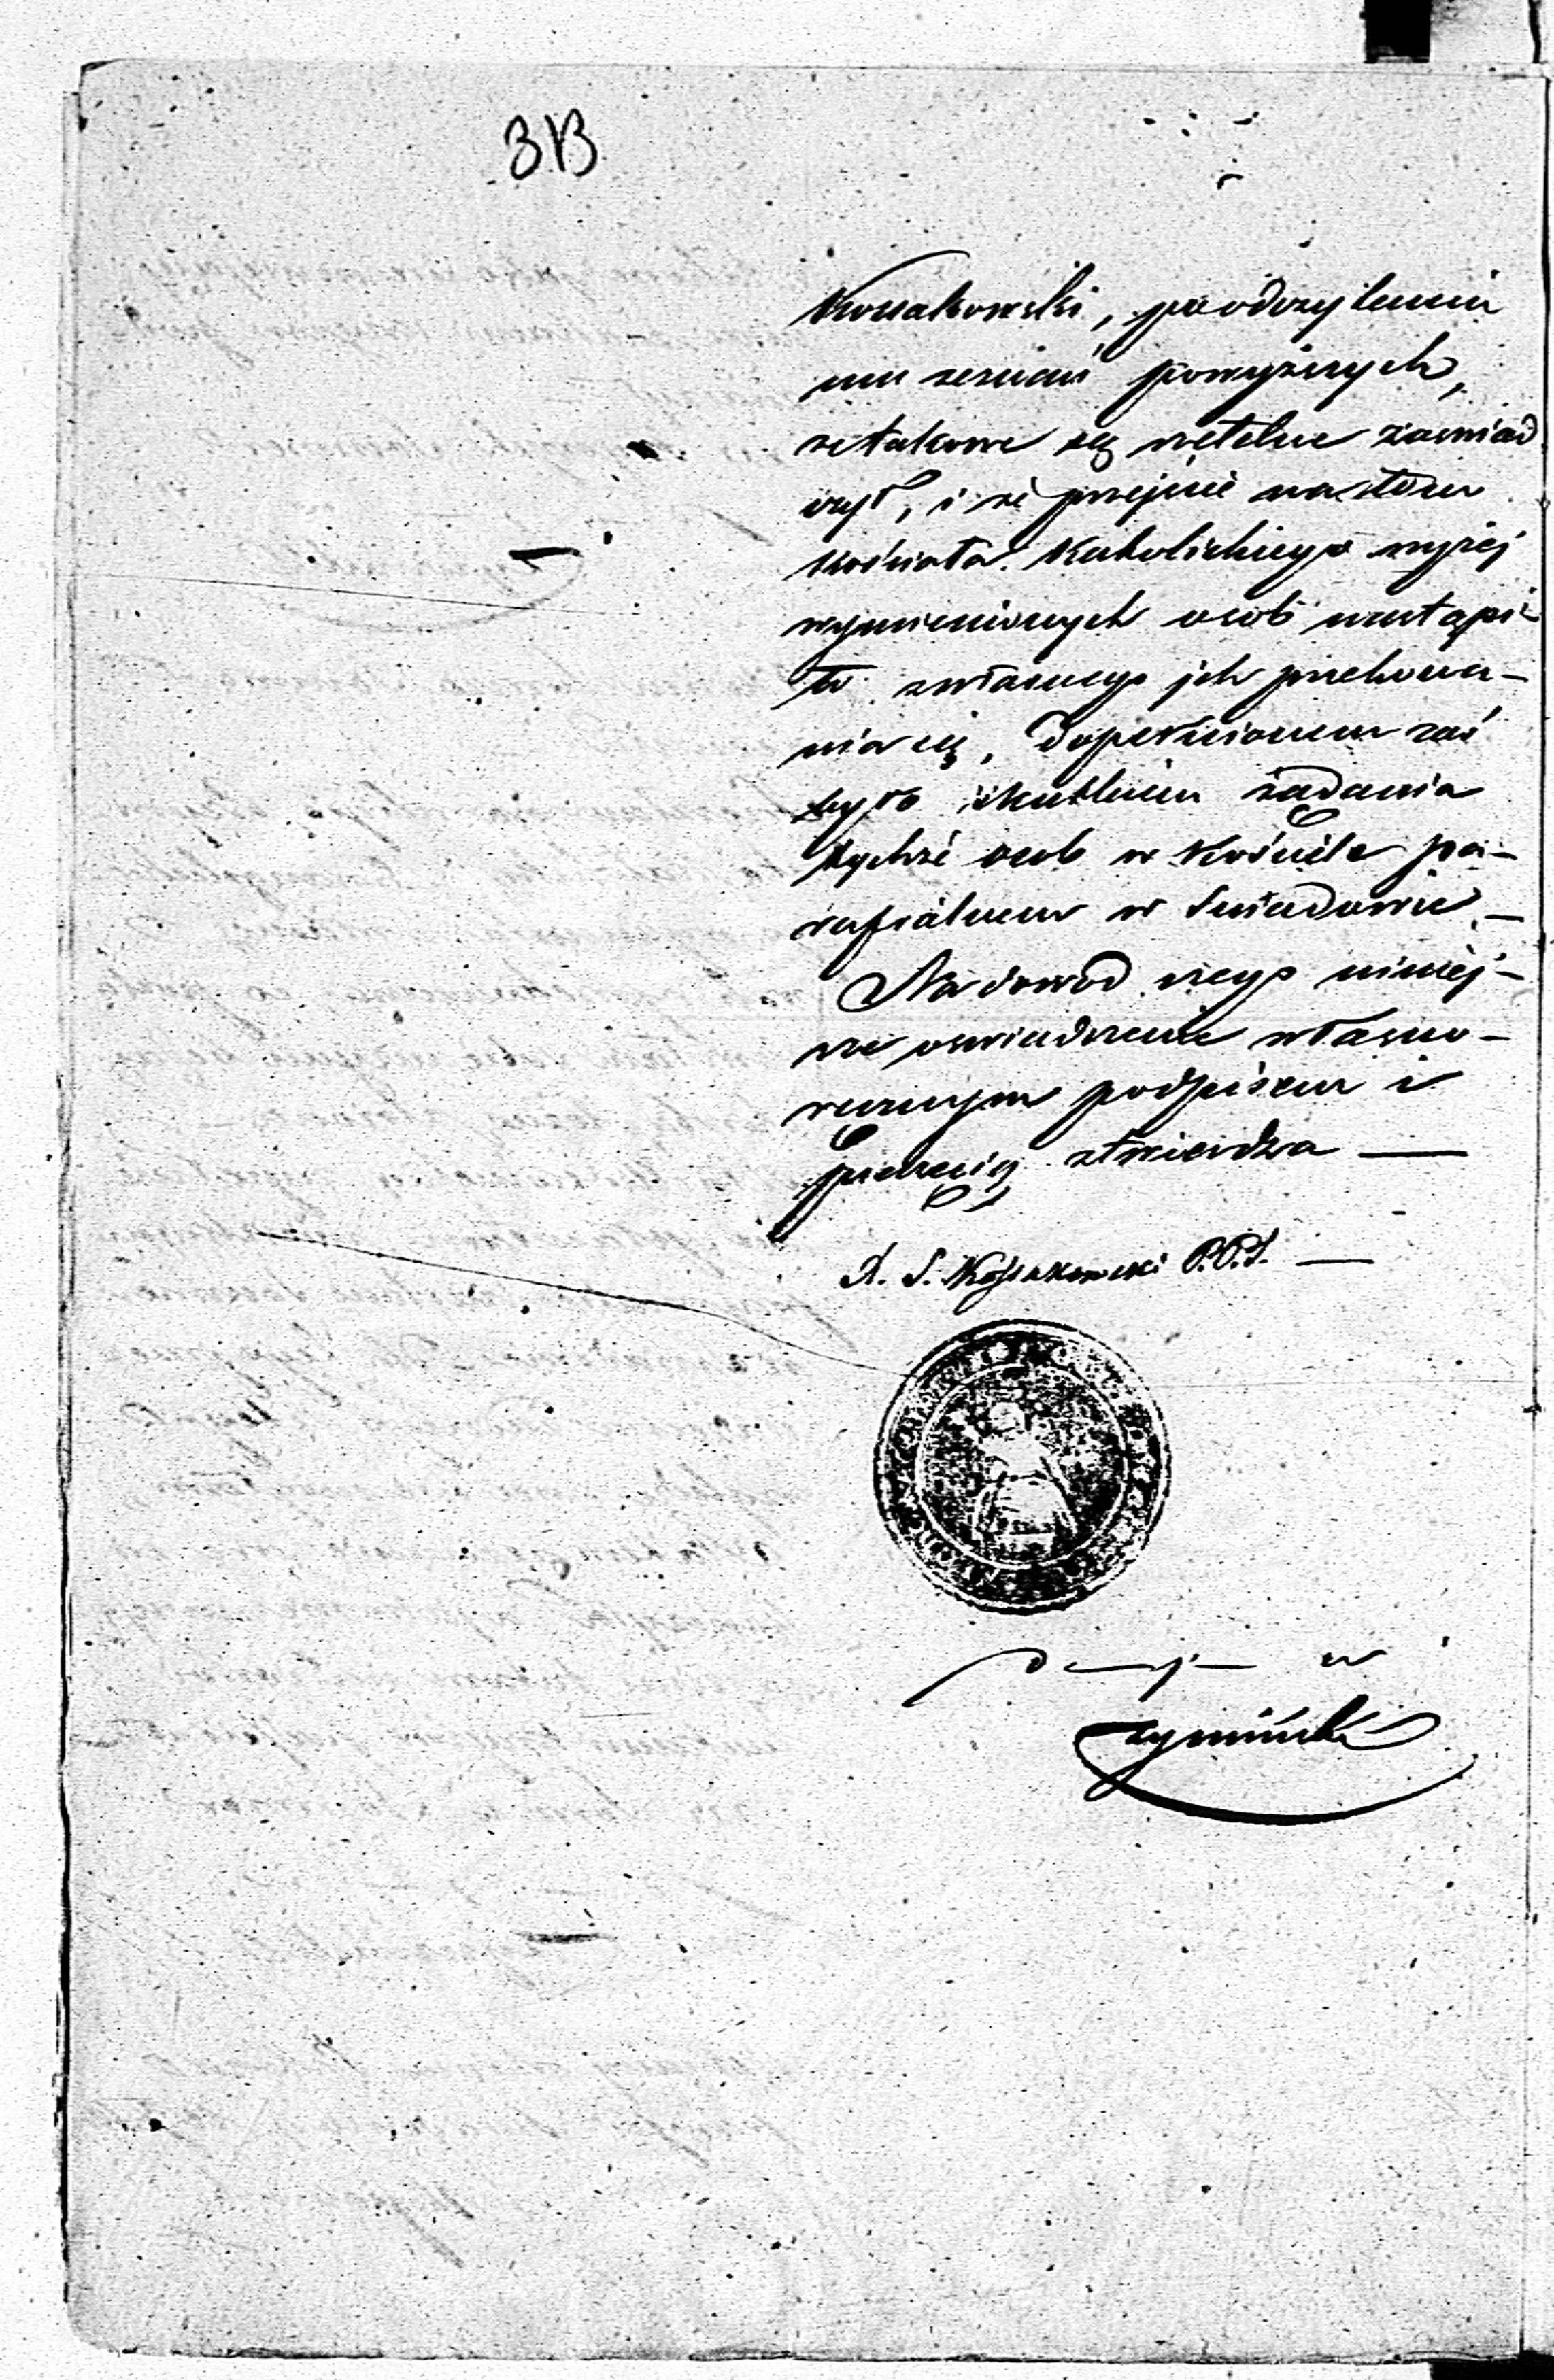 313
Kossakowski, po odczytaniu
mu zeznań powyższych,
że takowe są rzetelne zaświad
czył, i że przejście na łono
Kościoła Katolickiego wyżej
wymienionych osób nastąpi-
ło z własnego ich przekona-
nia się, dopełnionem zaś
było skutkiem żądania
tychże osób w Kościele pa-
rafialnem w Śniadowie –
Na dowód czego niniej-
sze oświadczenie własno-
ręcznym podpisem i
pieczęcią stwierdza —
X. S. Kossakowski P.P.S. —